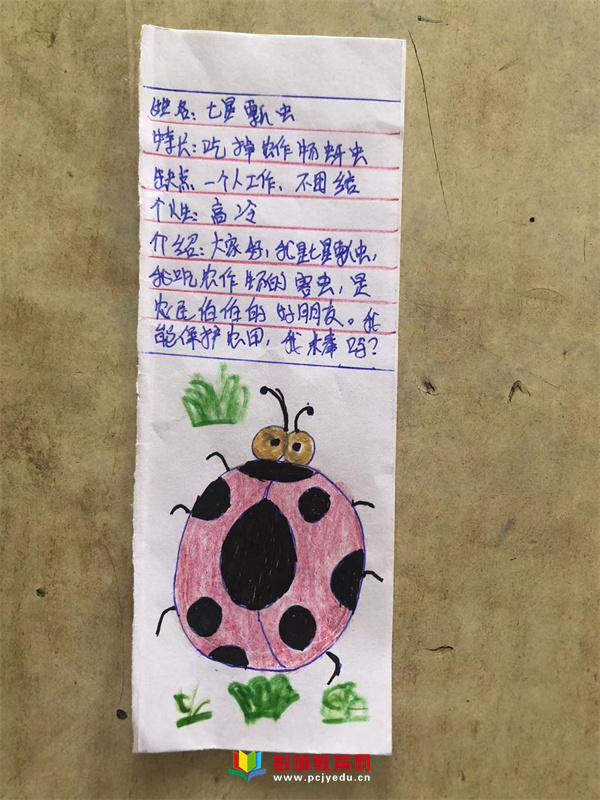 姓名：七星瓢虫
特长：吃掉农作物蚜虫
缺点一个人工作，不团结
个性：高冷
介绍：大家好，我是七星瓢虫，
我吃农作物的害虫，是
农民伯伯的好朋友。我
能保护农田，我棒吗？
彭城教育网
www.pcjyedu.cn